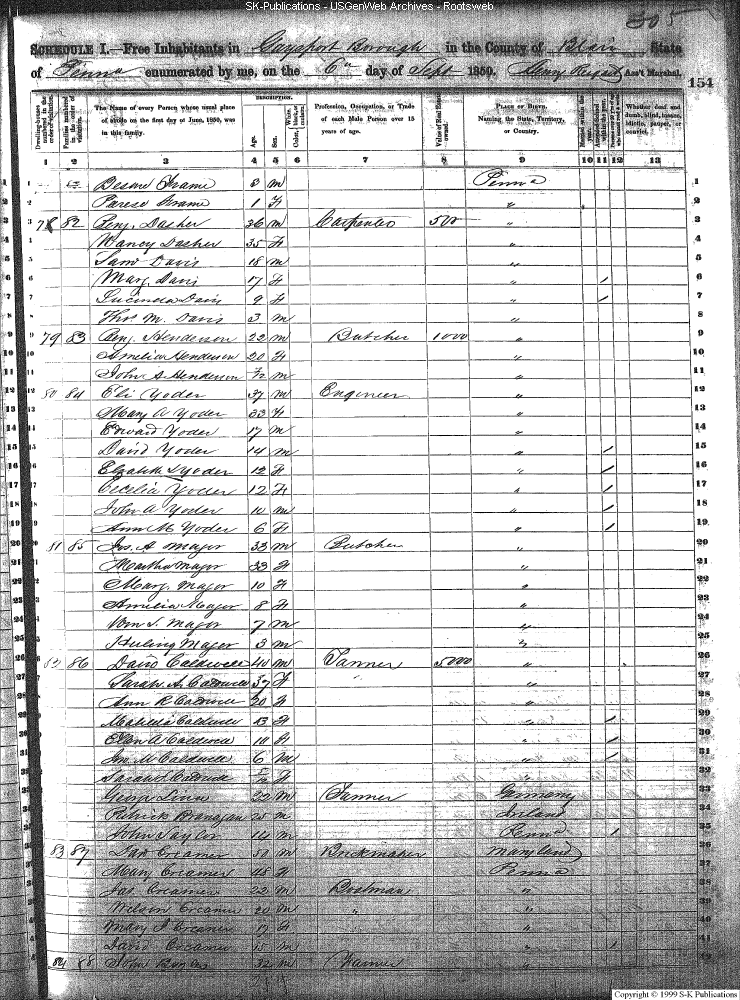 SK-Publications - USGenWeb Archives - Rootsweb
305
SCHEDULE I.—Free Inhabitants in Gaysport Borough in the County of Blair State
of Penna enumerated by me, on the 6th day of Sept 1850. Ass't Marshal.
154
Dwelling-houses numbered in the order of visitation.
Families numbered in the order of visitation.
The Name of every Person whose usual place of abode on the first day of June, 1850, was in this family.
DESCRIPTION.
Age.
Sex.
Color.
Profession, Occupation, or Trade of each Male Person over 15 years of age.
Value of Real Estate owned.
PLACE OF BIRTH. Naming the State, Territory, or Country.
Married within the year.
Whether deaf and dumb, blind, insane, idiotic, pauper, or convict.
1 2 3 4 5 6 7 8 9 10 11 12 13
1 8 m Penna 1
2 1 f " 2
3 78 82 Benj. Dasher 36 m Carpenter 500 " 3
4 Nancy Dasher 35 f " 4
5 Saml Davis 18 m " 5
6 Marg. Davis 17 f " / 6
7 Lucinda Davis 9 f " / 7
8 Thos M. Davis 3 m " 8
9 79 83 Benj. Henderson 22 m Butcher 1000 " 9
10 Amelia Henderson 20 f " 10
11 John A. Henderson m " 11
12 80 84 Eli Yoder 37 m Engineer " 12
13 Mary A Yoder 33 f " 13
14 Edward Yoder 17 m " 14
15 David Yoder 14 m " / 15
16 Elizabeth Yoder 12 f " / 16
17 Cecelia Yoder 12 f " / 17
18 John A Yoder 10 m " / 18
19 Ann M Yoder 6 f " / 19
20 81 85 Jos. A Major 33 m Butcher " 20
21 Martha Major 33 f " 21
22 Marg. Major 10 f " 22
23 Amelia Major 8 f " 23
24 Wm S. Major 7 m " 24
25 Huling Major 3 m " 25
26 82 86 David Caldwell 40 m Tanner 5000 " 26
27 Sarah A. Caldwell 37 f " 27
28 Ann R Caldwell 20 f " 28
29 Matilda Caldwell 13 f " / 29
30 Ellen A Caldwell 10 f " / 30
31 Jno. M Caldwell 6 m " / 31
32 Sarah Caldwell f " 32
33 George Linn 22 m Tanner Germany 33
34 Patrick Branagan 25 m Ireland 34
35 John Taylor 14 m Penna / 35
36 83 87 Creamer 50 m Brickmaker Maryland 36
37 Mary Creamer 45 f Penna 37
38 Jas. Creamer 22 m Boatman " 38
39 Wilson Creamer 20 m " " 39
40 Mary J Creamer 17 f " 40
41 David Creamer 15 m " / 41
42 84 88 John 32 m 42
Copyright © 1999 S-K Publications